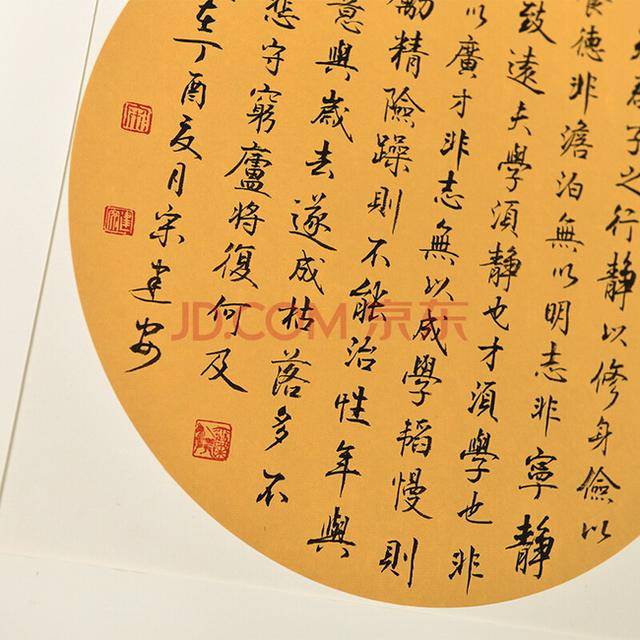 君子之行靜以修身儉以
養德非澹泊無以明志非寧靜
致遠夫學須靜也才須學也非
以廣才非志無以成學韜慢則
勵精險躁則不能治性年與
意與歲去遂成枯落多不
悲守窮廬將復何及
在丁酉夏月宋建安
JD.COM 京东